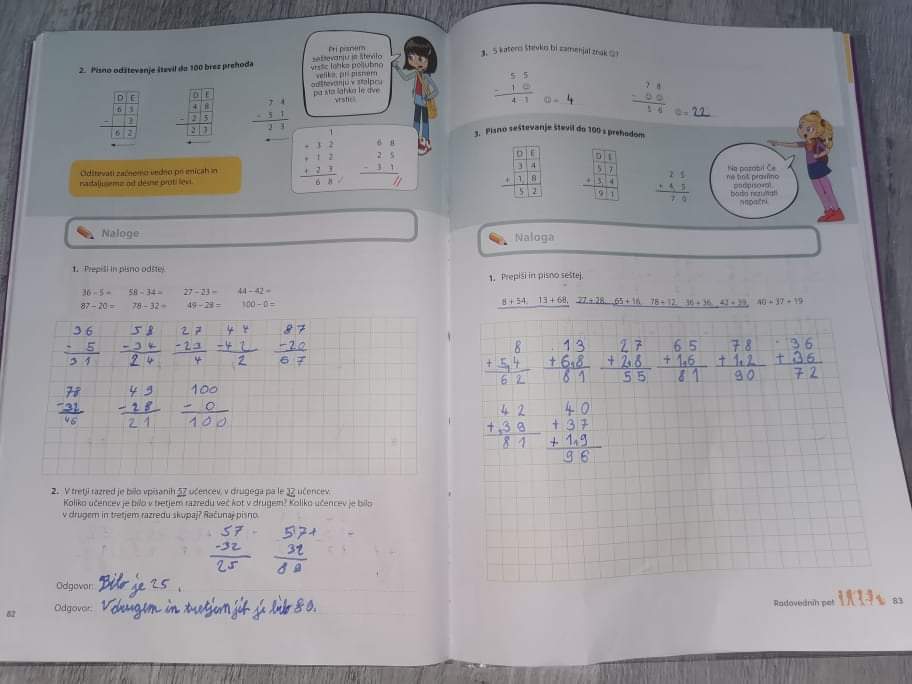 2. Pisno odštevanje števil do 100 brez prehoda
D E
6 5
- 3
6 2
D E
4 8
- 2 5
2 3
7 4
- 5 1
2 3
Pri pisnem
seštevanju je število
vrstic lahko poljubno
veliko, pri pisnem
odštevanju v stolpcu
pa sta lahko le dve
vrstici.
1
+ 3 2
+ 1 2
+ 2 3
6 8
6 8
2 5
- 3 1
Odštevati začnemo vedno pri enicah in
nadaljujemo od desne proti levi.
Naloge
1. Prepiši in pisno odštej.
36 – 5 = 58 – 34 = 27 – 23 = 44 – 42 =
87 – 20 = 78 – 32 = 49 – 28 = 100 – 0 =
36 58 27 44 87
- 5 -34 -23 -42 -20
31 24 4 2 67
78 49 100
-32 -28 - 0
46 21 100
2. V tretji razred je bilo vpisanih 57 učencev, v drugega pa le 32 učencev.
Koliko učencev je bilo v tretjem razredu več kot v drugem? Koliko učencev je bilo
v drugem in tretjem razredu skupaj? Računaj pisno.
57 57+
-32 32
25 89
Odgovor: Bilo je 25.
Odgovor: V drugem in tretjem jih je bilo 89.
82
3. S katero števko bi zamenjal znak ☺?
5 5
- 1 ☺
4 1
☺ = 4
7 8
- ☺ ☺
5 6
☺ = 22
3. Pisno seštevanje števil do 100 s prehodom
D E
3 4
+ 1 8
5 2
D E
5 7
+ 3 4
9 1
2 5
+ 4 5
7 0
Ne pozabi! Če
ne boš pravilno
podpisoval,
bodo rezultati
napačni.
Naloga
1. Prepiši in pisno seštej.
8 + 54, 13 + 68, 27 + 28, 65 + 16, 78 + 12, 36 + 36, 42 + 39, 40 + 37 + 19
8 13 27 65 78 36
+54 +68 +28 +16 +12 +36
62 81 55 81 90 72
42 40
+39 +37
81 +19
96
Radovednih pet 83